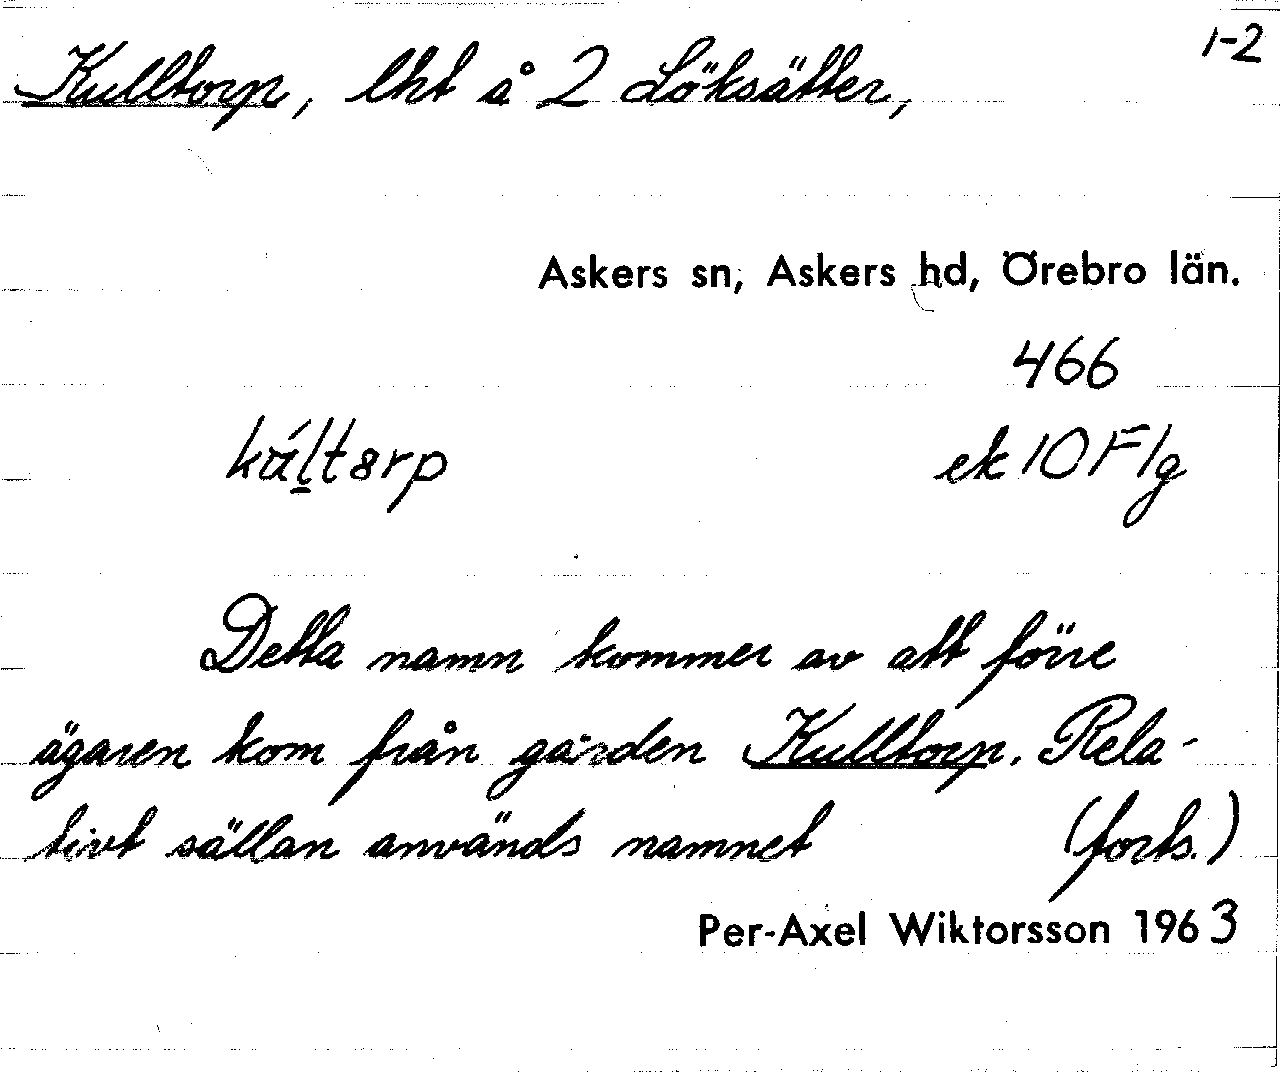 Kulltorp, lht å 2 Löksätter, 1-2
Askers sn, Askers hd, Örebro län.
466
ek 10 F 1g
Detta namn kommer av att förre
ägaren kom från gården Kulltorp. Rela-
tivt sällan används namnet (forts.)
Per-Axel Wiktorsson 1963